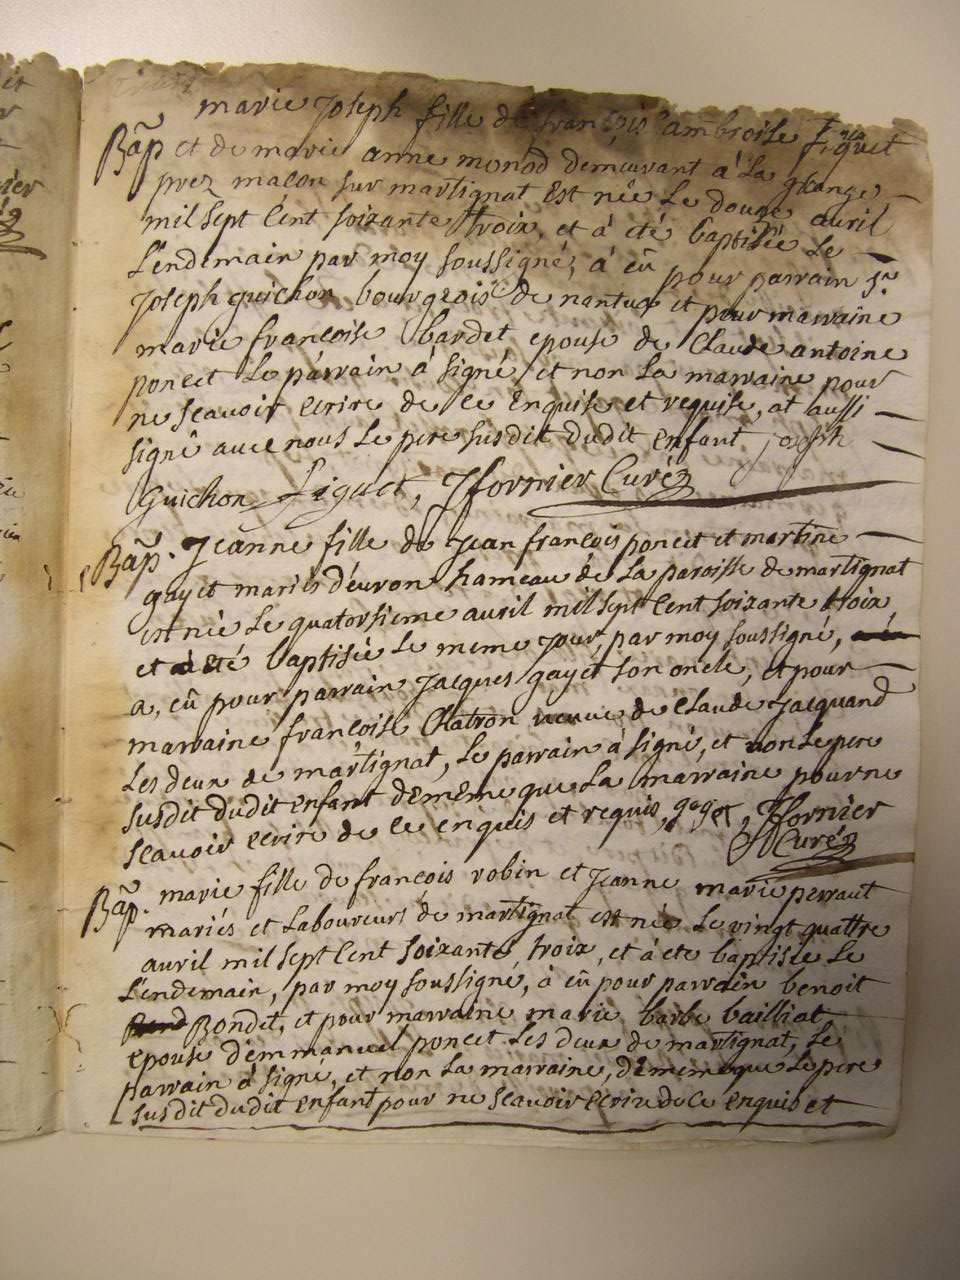 marie Joseph fille de françois ambroise figuet
Bap et de marie anne monod demeurant à La grange
prez macon sur martignat est née Le douze avril
mil sept Cent soixante troix, et à été baptisée Le
L'endemain par moy soussigné, à eû pour parrain Sr
Joseph guichon bourgeois de nantua et pour marraine
marie francoise bardet epouse de Claude antoine
poncet Le parrain à signé, et non La marraine pour
ne scavoir ecrire de ce Enquise et requise, at aussi
signé avec nous Le pere susdit dudit enfant joseph
Guichon figuet, Jfornier Curé
Bap. Jeanne fille de Jean francois poncet et martine
gayet mariés d'evron hameau de La paroisse de martignat
est née Le quatorsieme avril mil sept Cent soixante troix
et à eté baptisée Le meme jour, par moy soussigné,
a, eû pour parrain Jacques gayet son oncle, et pour
marraine francoise Chatron veuve de Claude Jacquand
Les deux de martignat, Le parrain à signé, et non Le pere
susdit dudit enfant de meme que La marraine pour ne
scavoir ecrire de ce enquis et requis, Jfornier
Curé
Bap. marie fille de francois robin et Jeanne marie perraut
mariés et Laboureurs de martignat est née Le vingt quattre
avril mil sept Cent soixante, troix, et à eté baptisée Le
L'endemain, par moy soussigné, à eû pour parrain benoit
Bondet, et pour marraine marie barbe bailliat
epouse d'emmanuel poncet Les deux de martignat, Le
parrain à signé, et non La marraine, de meme que Le pere
susdit dudit Enfant pour ne scavoir ecrire de Ce enquis et